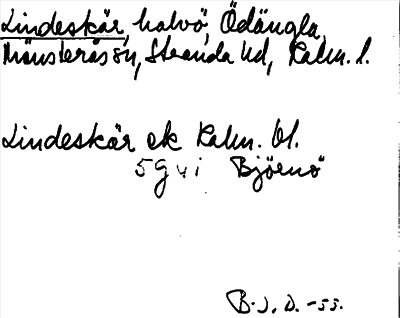 Lindeskär, halvö, Ödängla,
Mönsterås sn, Stranda hd, Kalm. l.
Lindeskär ek Kalm. bl.
5G4i Björnö
B.J.D. -55.